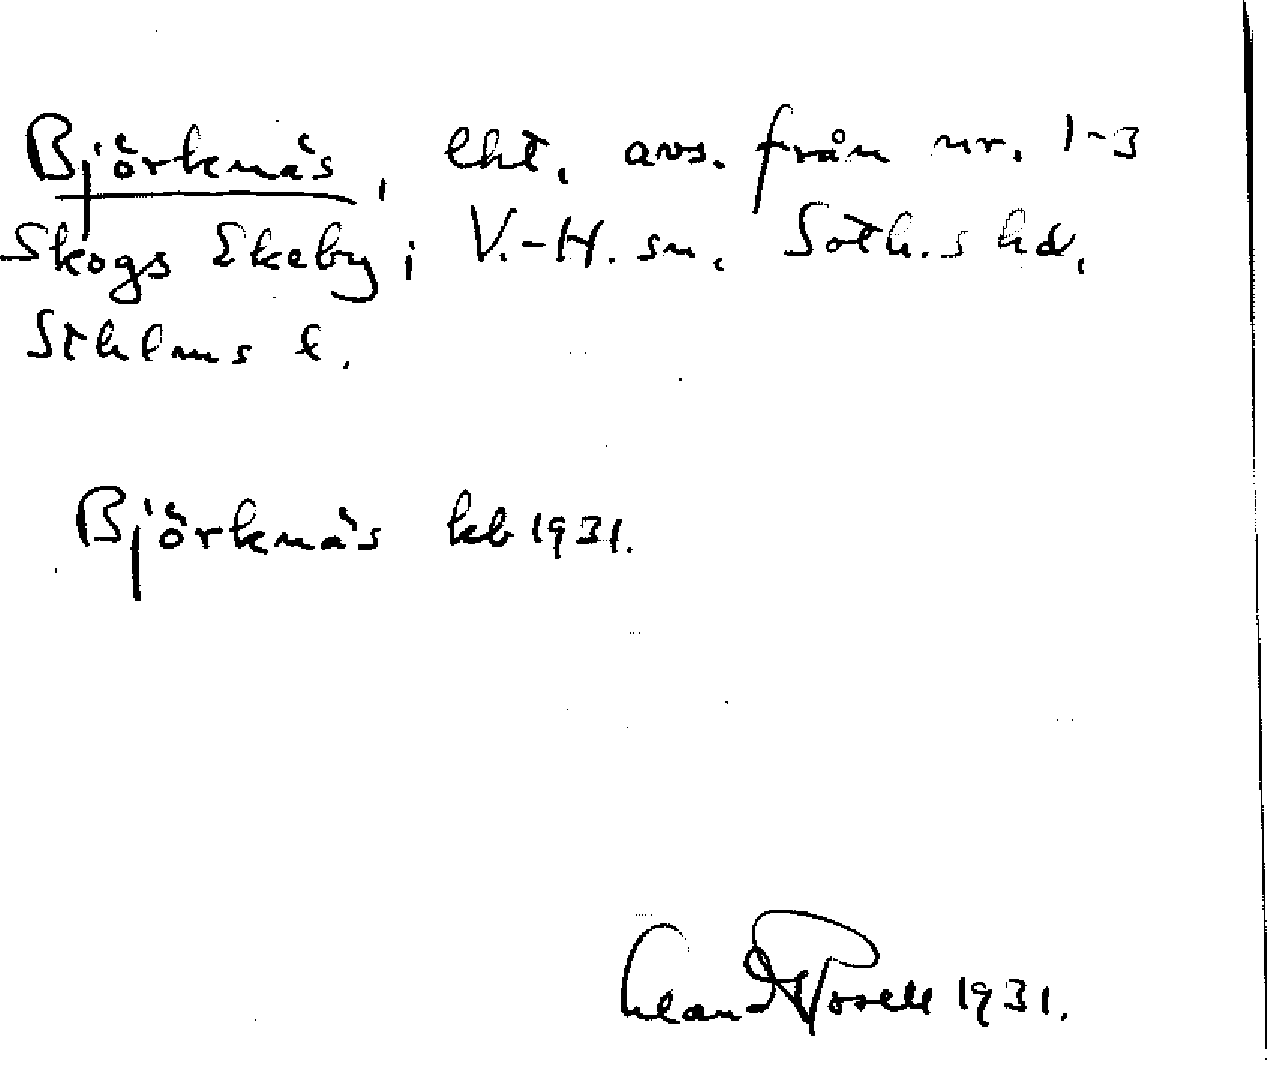 Björknäs, lht. avs. från nr. 1-3
Skogs Ekeby i V.-H. sn. Soth.s hd,
Sthlms l.
Björknäs kb 1931.
1931.